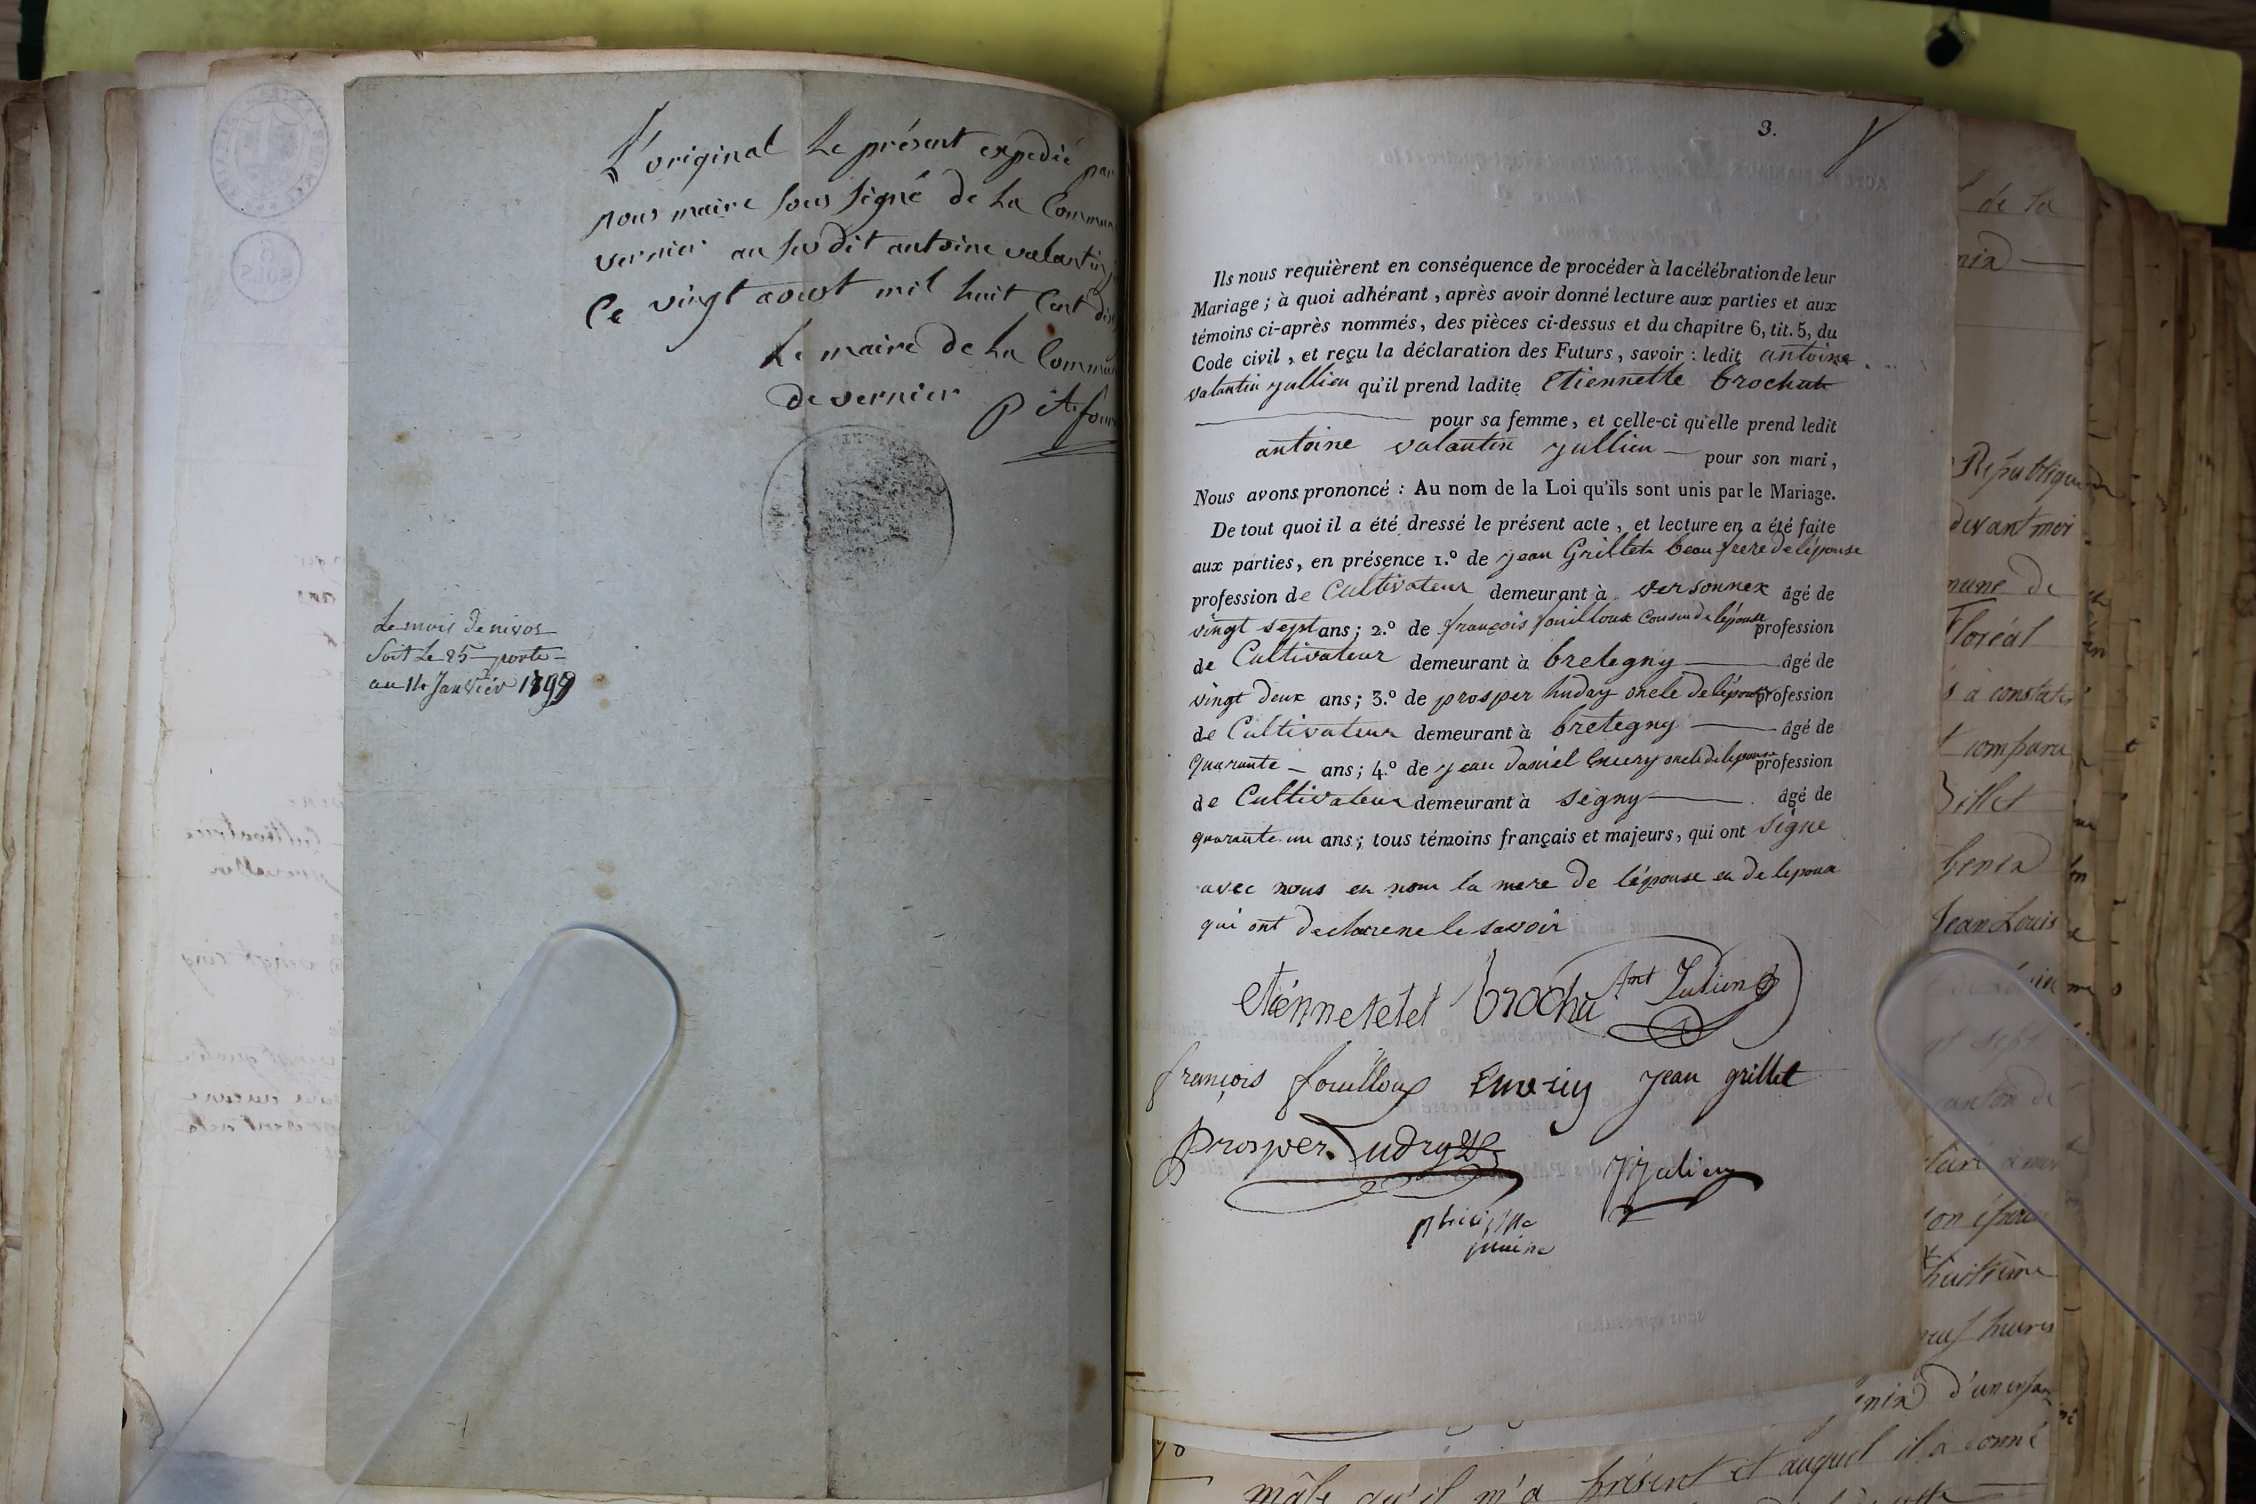 L'original Le présent expedié par
nous maire sous signé de La Commun
vernier au susdit antoine valantin
Ce vingt aoust mil huit Cent dix
Le maire de La Commun
de vernier
Le mois de nivos
Soit Le 25 porte
au 14 Janvier 1799
6
SOLS
3.
Ils nous requièrent en conséquence de procéder à la célébration de leur
Mariage ; à quoi adhérant , après avoir donné lecture aux parties et aux
témoins ci-après nommés, des pièces ci-dessus et du chapitre 6, tit. 5, du
Code civil , et reçu la déclaration des Futurs , savoir : ledit antoine
valantin jullien qu'il prend ladite Etiennette brochut
pour sa femme, et celle-ci qu'elle prend ledit
antoine valantin jullien — pour son mari,
Nous avons prononcé : Au nom de la Loi qu'ils sont unis par le Mariage.
De tout quoi il a été dressé le présent acte , et lecture en a été faite
aux parties, en présence 1.º de jean Grillet beau frere de lépouse
profession de Cultivateur demeurant à versonnex âgé de
vingt sept ans ; 2.º de françois fouilloux Cousin de lépouse profession
de Cultivateur demeurant à bretegny — âgé de
vingt deux ans ; 3.º de prosper hudry oncle de lépouse profession
de Cultivateur demeurant à bretegny — âgé de
quarante — ans ; 4.º de jean daniel Emery oncle de lepouse profession
de Cultivateur demeurant àségny — âgé de
quarante un ans ; tous témoins français et majeurs, qui ont signe
avec nous en non la mere de lépouse en de lepoux
qui ont declare ne le savoir
etiénnetetet brochu Ant Julien
françois fouilloux Emery jean grillet
prosper hudry
J Julien
philippe
maire
de la
République
devant moi
mune de
Floréal
à constater
comparu
Jean Louis
huitième
neuf heures
d'un enfan
mâle qu'il m'a présent et auquel il a donné